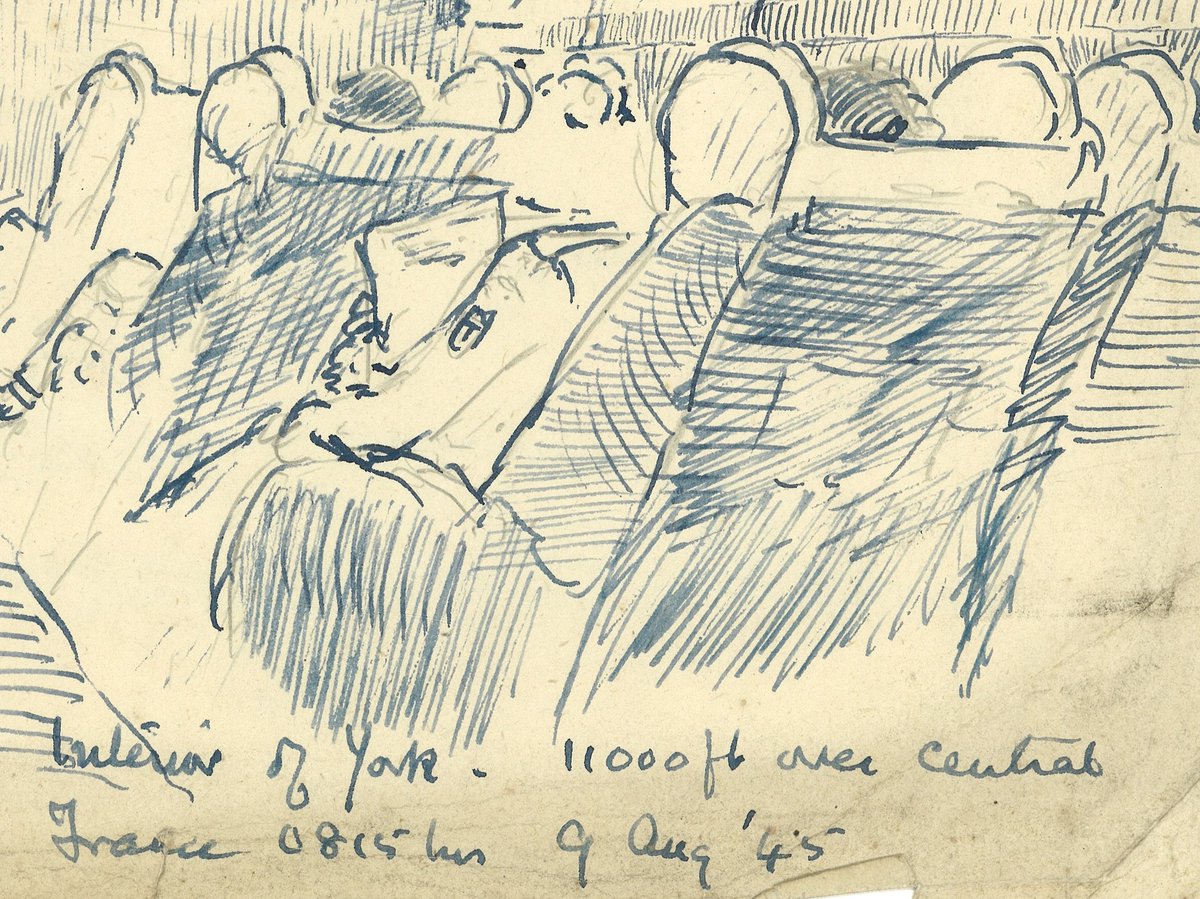 Interior of York. 11000ft over central
France 0815 hrs 9 Aug '45